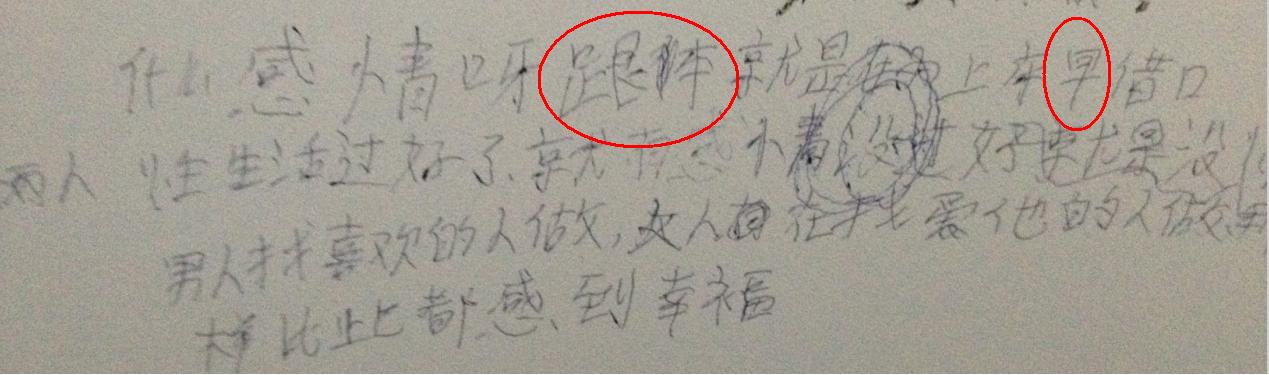 什么感情呀跟本就是在为上床早借口
两人性生活过好了就有感情没过好就是没
男人找喜欢的人做,女人在找爱他的人做
样比此都感到幸福